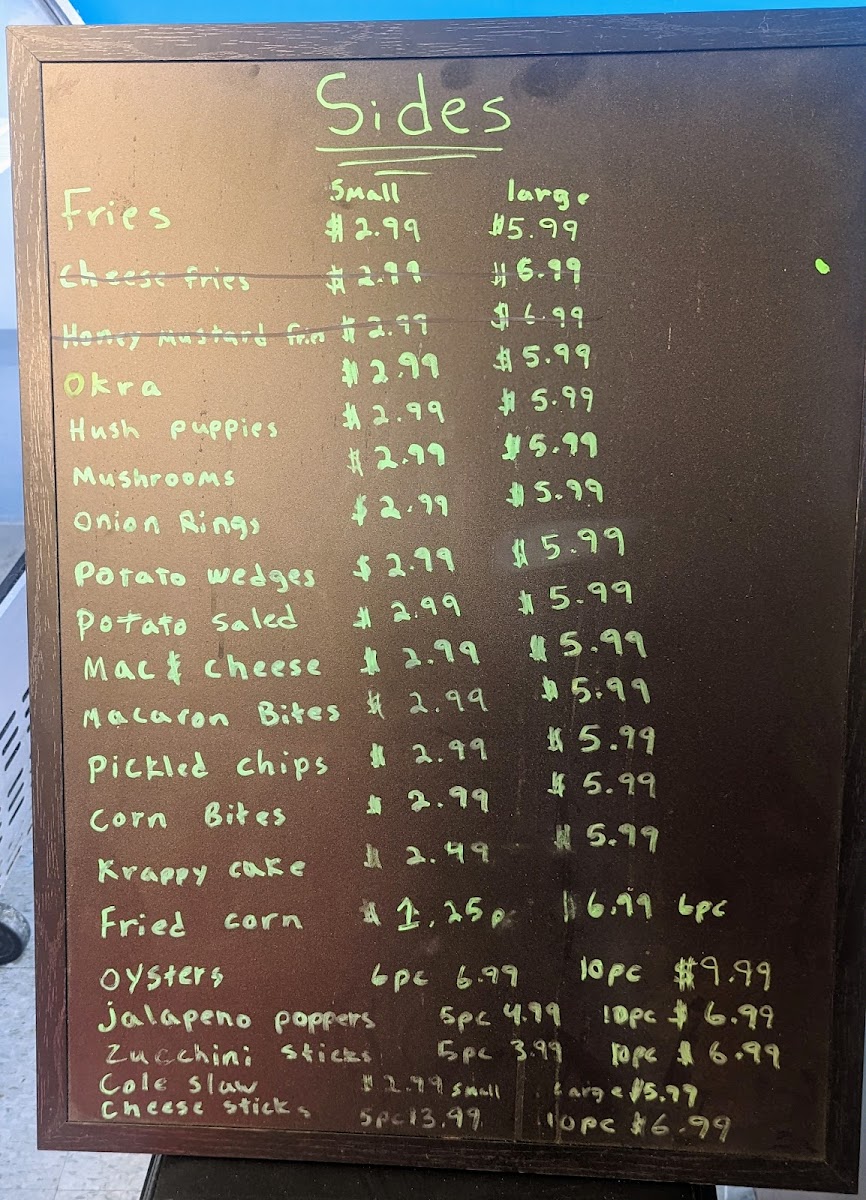 Sides
small large
Fries $2.99 $5.99
Cheese fries $2.99 $6.99
Honey Mustard fries $2.99 $6.99
Okra $2.99 $5.99
Hush puppies $2.99 $5.99
Mushrooms $2.99 $5.99
Onion Rings $2.99 $5.99
Potato wedges $2.99 $5.99
Potato saled $2.99 $5.99
Mac & cheese $2.99 $5.99
Macaron Bites $2.99 $5.99
Pickled chips $2.99 $5.99
Corn Bites $2.99 $5.99
Krappy cake $2.49 $5.99
Fried corn $1.25pc $6.99 6pc
Oysters 6pc 6.99 10pc $9.99
Jalapeno poppers 5pc 4.99 10pc $6.99
Zucchini sticks 5pc 3.99 10pc $6.99
Cole slaw $2.99 small Large $5.99
Cheese sticks 5pc 3.99 10pc $6.99